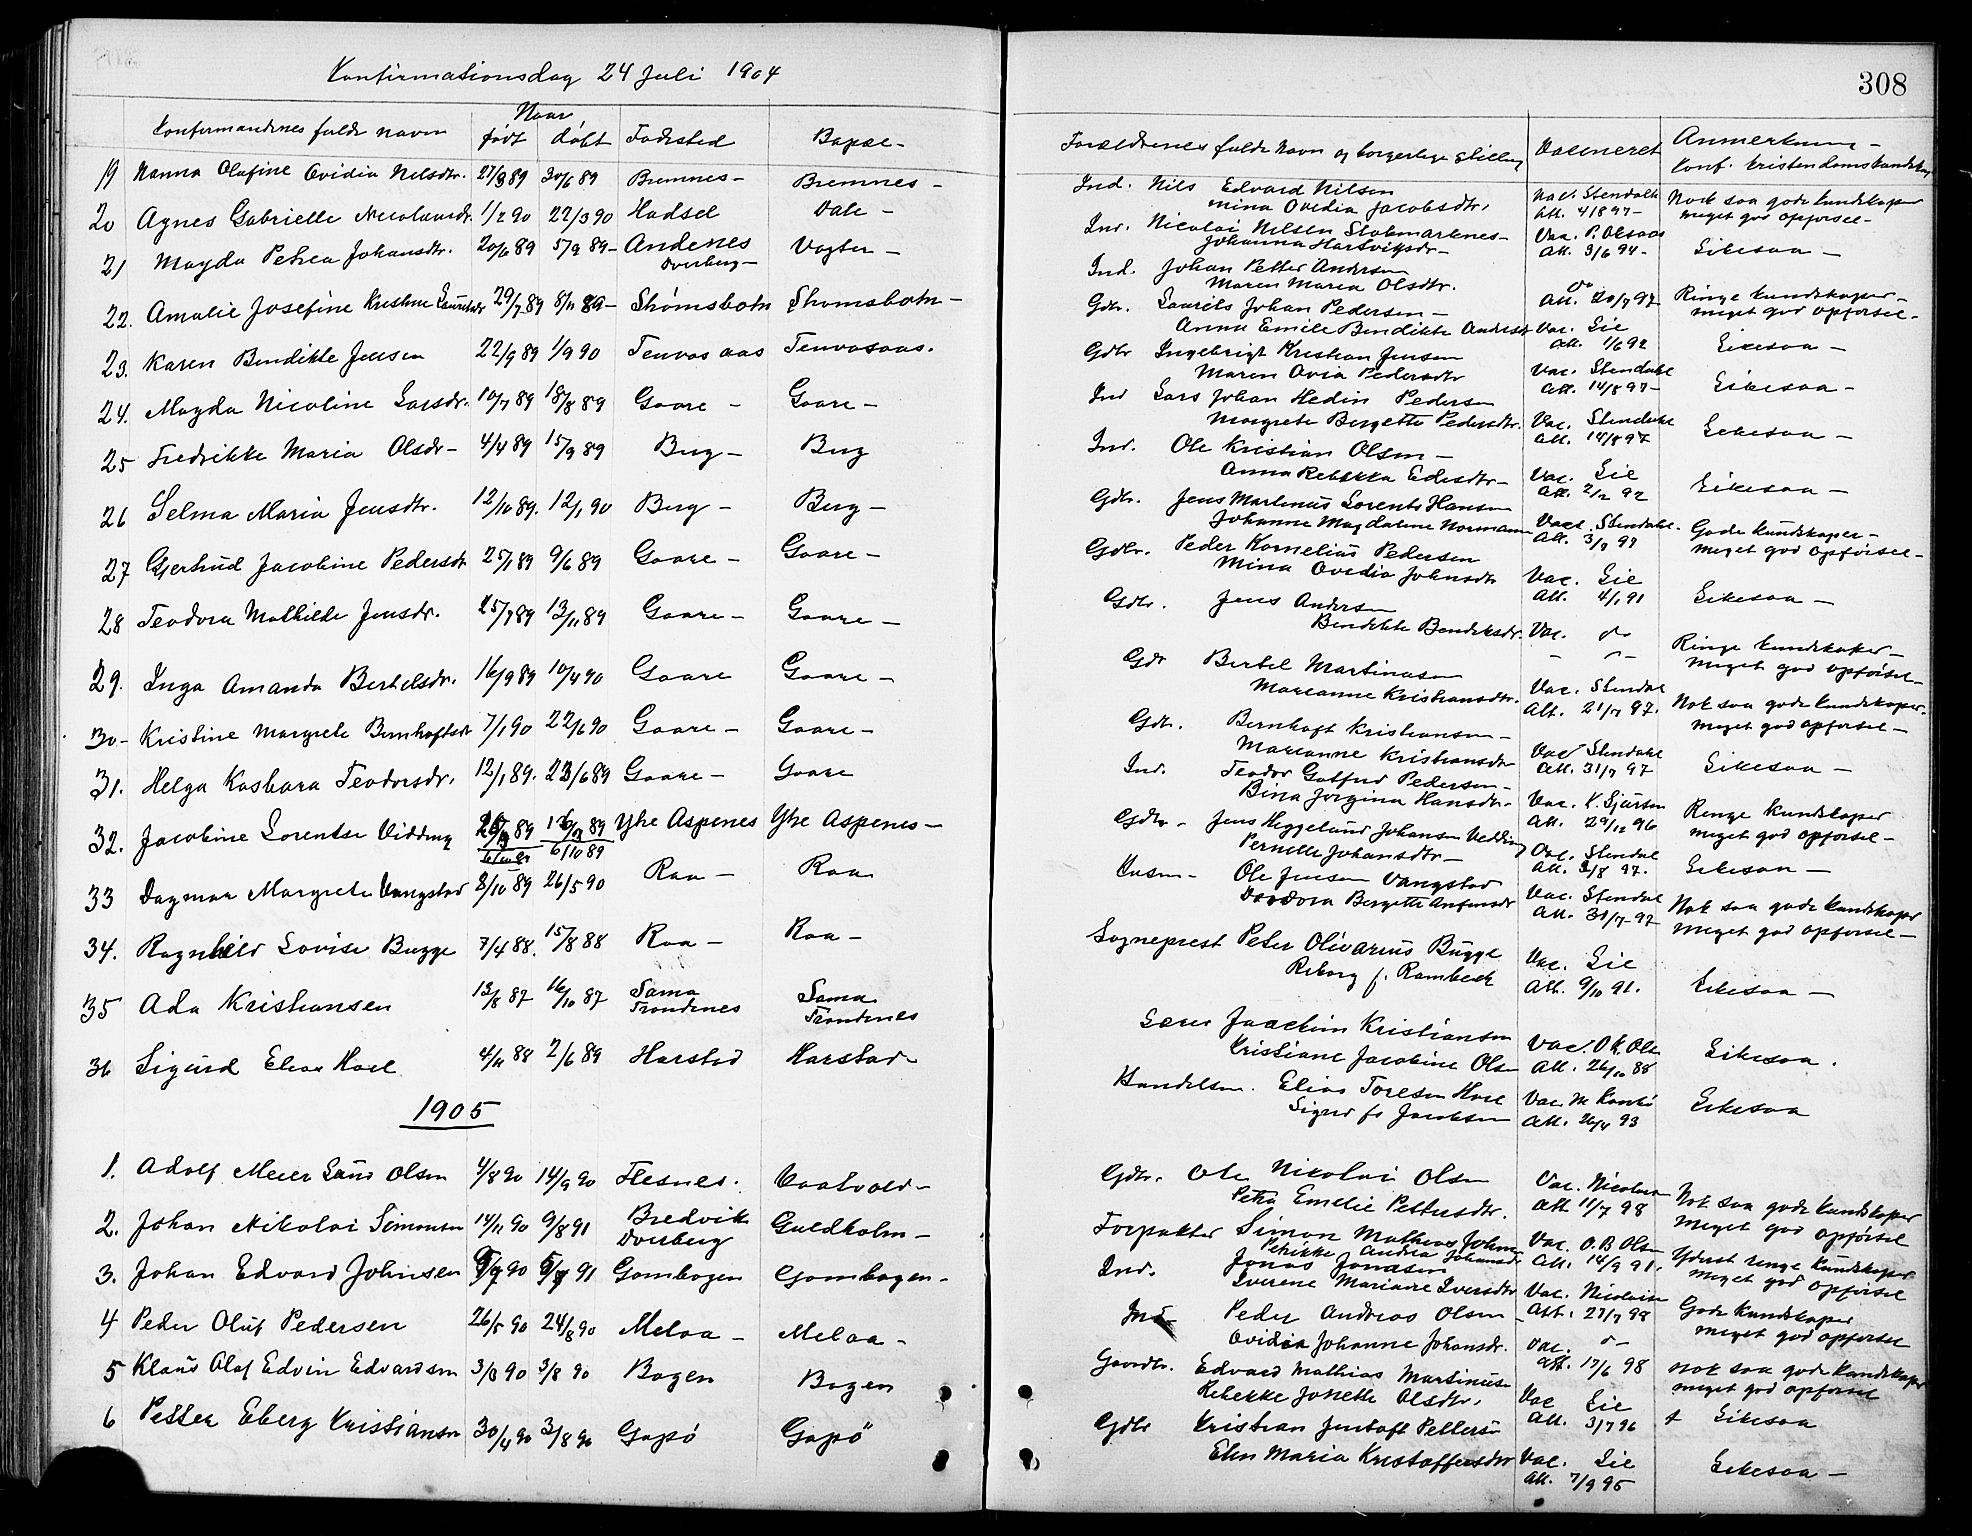 Konfirmationsdag 24 Juli 1904
308
Konfirmandernes fulde navn
Naar
født døbt Fødested Bopæl-
Forældrenes fulde navn og borgerlige stilling Vaccineret Anmerkning -
konf. kristendomskundskap
19 Nanna Olufine Ovidia Nilsdtr. 27/3 89 30/6 89 Bremnes - Bremnes -
Ind. Nils Edvard Nilsen Vac. Stendahl Nock saa gode kundskaper
Mina Ovidia Jacobsdtr. Att. 4/8 97- meget god opførsel-
20 Agnes Gabrielle Nicolaisdr. 1/2 90 22/3 90 Hadsel Dale -
Ind. Nicolai Nilsen Stokmarknes- Vac. P. Olsaas
Johanna Hartvigsdr- Att. 3/6 94- Likesaa -
21 Magda Petrea Johansdtr. 20/6 89 5/9 89- Andenes Vogter -
Dverberg-
Ind. Johan Petter Andersen do
Maren Maria Olsdtr. Att. 20/7 97- Ringe kundskaper-
meget god opførsel-
22. Amalie Josefine Kristine Lauritsdr 29/7 89 8/11 89- Strømsbotn Strømsbotn -
Gdbr. Laurits Johan Pedersen-
Anna Emilie Bendikte Andersdtr Vac. Lie
Att. 1/6 92 Likesaa -
23. Karen Bendikte Jensen 22/9 89 1/9 90 Tenvasaas Tenvasaas.
Gdbr Ingebrigt Kristian Jensen
Maren Ovia Pedersdtr Vac. Stendahl
Att. 14/8 97- Likesaa -
24. Magda Nicoline Larsdr. 10/7 89 18/8 89 Gaare - Gaare -
Ind Lars Johan Hedin Pedersen
Margrete Bergette Pedersdtr. Vac. Stendahl
Att. 14/8 97 Likesaa -
25 Fredrikke Maria Olsdr- 4/4 89 15/9 89 Berg - Berg
Ind. Ole Kristian Olsen -
Anna Rebekka Edisdtr- Vac. Lie
Att. 2/12 92 Likesaa -
26 Selma Maria Jensdtr. 12/10 89. 12/1 90 Berg - Berg -
Gdbr. Jens Martinus Lorents Hansen
Johanne Magdalene Normann Vac. Stendahl. Gode kundskaper-
Att. 3/7 97 meget god opførsel-
27 Gjertrud Jacobine Pedersdtr 25/1 89 9/6 89 Gaare - Gaare -
Gdbr. Peder Kornelius Pedersen
Mina Ovedia Johnsdtr Vac. Lie
Att. 4/1 91 Likesaa -
28 Teodora Mathilde Jensdr. 25/7 89 13/11 89 Gaare - Gaare -
Gdbr. Jens Andersen
Bendikte Bendiksdr. Vac. do
- - Ringe kundskaper-
meget god opførsel-
29. Inga Amanda Bertelsdr. 16/9 89 10/4 90 Gaare Gaare -
Gdr Bertel Martinusen
Marianne Kristiansdtr. Vac. Stendal
Att. 21/7 97. Nok saa gode kundskaper.
meget god opførsel-
30- Kristine Margrete Bernhoftsdr 7/1 90 22/6 90 Gaare - Gaare -
Gdr. Bernhoft Kristiansen-
Marianne Kristiansdtr Vac Stendahl
Att. 31/7 97 Likesaa -
31. Helga Kasbara Teodorsdr. 12/1 89. 23/6 89 Gaare - Gaare
Ind. Teodor Gotfred Pedersen-
Bina Jorgina Hansdr- Vac. K. Sjursen
Att. 29/12 96 Ringe kundskaper
meget god opførsel-
32. Jacobine Lorentse Vidding 89 89 Ytre Aspenes Ytre Aspenes-
6/10 89
Gdbr- Jens Heggelund Johansen Vedding
Pernelle Johansdtr- Vac. Stendal
Att. 3/8 97. Likesaa -
33 Dagmar Margrete Vangstad 8/10 89 26/5 90 Raa - Raa
Husm- Ole Jensen Vangstad
Dordora Bergette Antonsdr Vac. Stendal
Att. 31/7-97 Nok saa gode kundskaper
meget god opførsel-
34. Ragnhild Lovise Bugge 7/4 88. 15/8 88 Raa - Raa -
Sogneprest Peter Olivarius Bugge
Riborg f. Rambech Vac. Lie
Att. 9/10 91. Likesaa -
35 Ada Kristiansen 13/8 87 16/10 87 Sama Sama
Trondenes Trondenes
Joachim Kristiansen
Kristiane Jacobine Olsen Vac. O K. Olsen
Att. 26/10 88 Likesaa.
36 Sigurd Elias Hoel 4/11 88 2/6 89 Harstad Harstad
Handelsm. Elias Toresen Hoel
Sigrid f. Jacobsen Vac. M
Att. 26/4 93 Likesaa
1905
1. Adolf Meier Laus Olsen 4/8 90 14/9 90 Flesnes. Vaatvold-
Gdbr. Ole Nikolai Olsen
Petra Emelie Pettersdtr. Vac. Nicolaisen
Att 11/7 98 Nok saa gode kundskaper
meget god opførsel
2. Johan Nikolai Simonsen 14/11 90 9/8 91 Bredvik Guldholm-
Dverberg
Forpakter Simon Mathias Johnsen
Petrikke Andrea Johansdr Vac. O. B Olsen
Att. 14/9 91. Yderst ringe kundskaper
meget god opførsel
3. Johan Edvard Johnsen 90 91 Gombogen Gombogen-
Ind. Jonas Jonassen
Iverene Mariane Iversdtr Vac. Nicolaisen
Att. 27/7 98 Gode kundskaper
meget god opførsel
4 Peder Oluf Pedersen 26/5 90 24/8 90 Melaa - Melaa -
Ind- Peder Andreas Olsen -
Ovidia Johanne Johansdr. Vac. do
Att. 17/6 98 nok saa gode kundskaper
meget god opførsel
5 Klaus Olaf Edvin Edvardsen 3/3 90 3/8 90 Bogen Bogen
Gaardbr. Edvard Mathias Martinusen
Rebekke Jonette Olsdtr. Vac Lie
Att. 3/7 96 Likesaa
6 Petter Eberg Kristiansen 30/4 90 3/8 90 Gapø Gapø
Gdbr Kristian Jentoft Pettersen
Elen Maria Kristoffersdtr Vac. Lie
Att. 7/9 95 Likesaa -